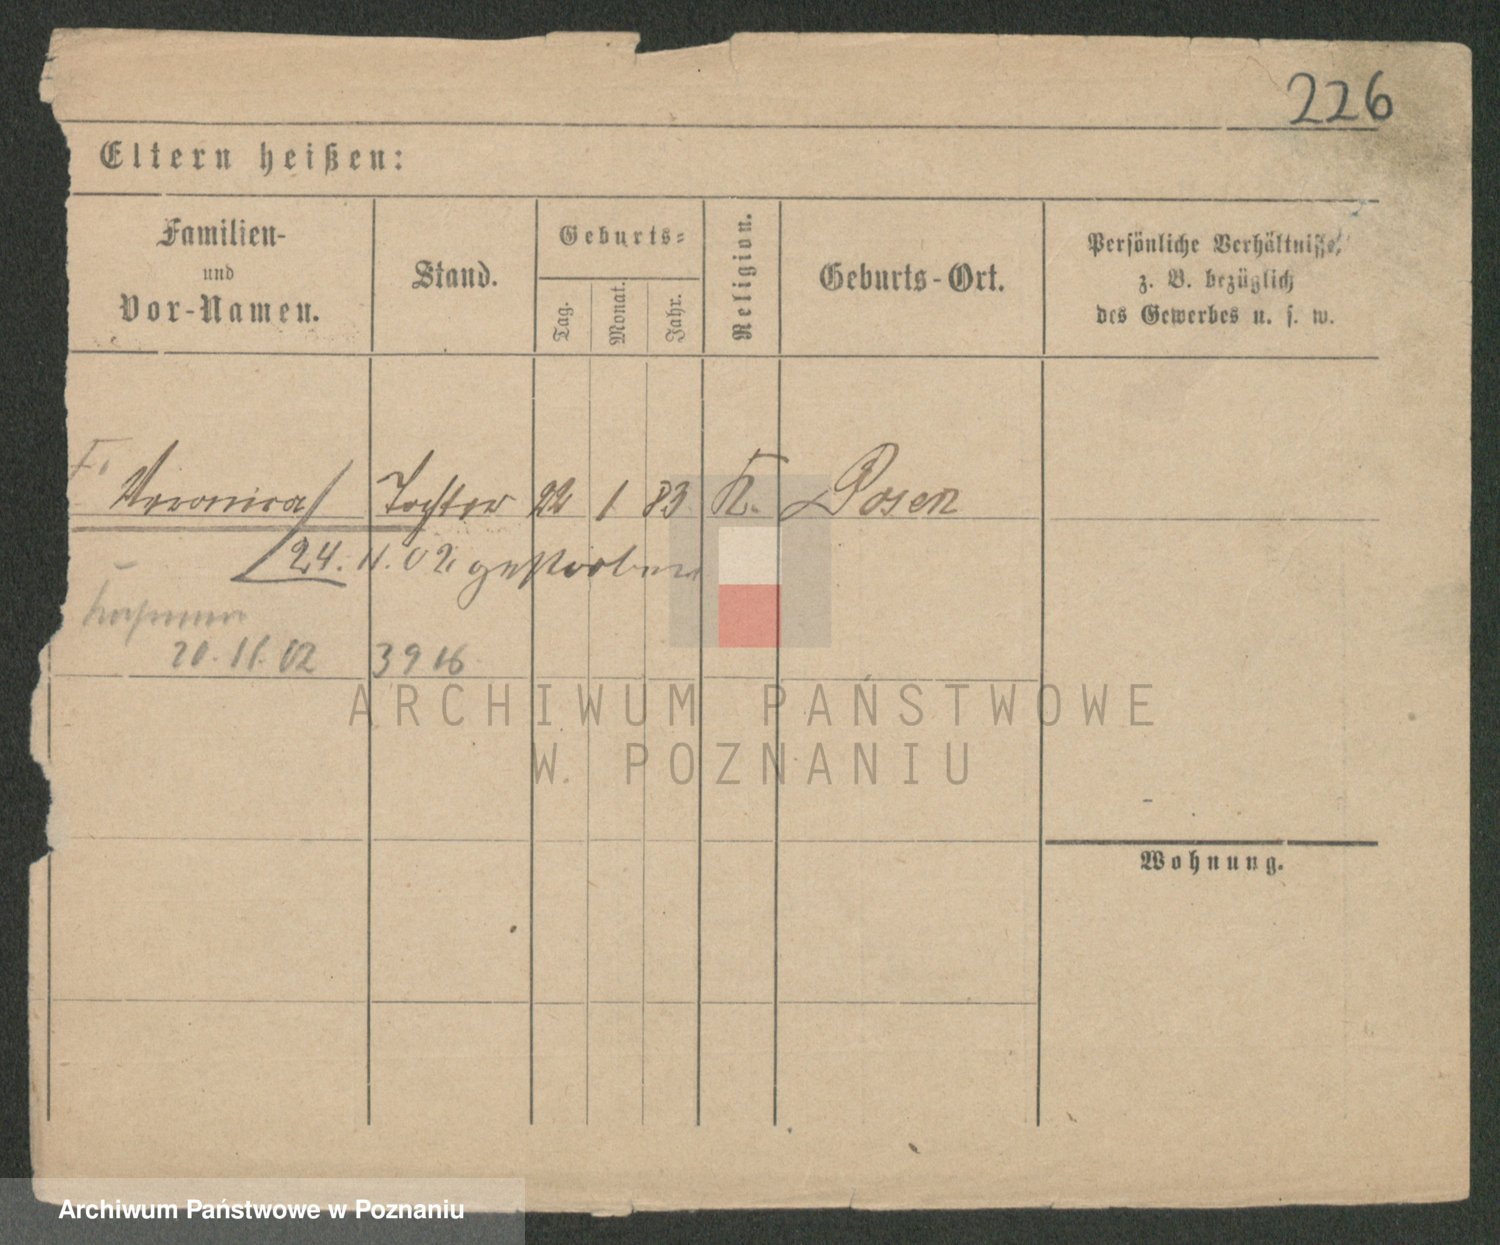 226
Eltern heißen:
Familien-
und
Vor-Namen.
Stand.
Geburts-
Tag.
Monat.
Jahr.
Religion.
Geburts-Ort.
Persönliche Verhältnisse,
z. B. bezüglich
des Gewerbes u. s. w.
Veronica Tochter 22 1 83 K. Posen
24. 11. 02 gestorben
20. 11. 02 3916
ARCHIWUM PAŃSTWOWE
W POZNANIU
Wohnung.
Archiwum Państwowe w Poznaniu